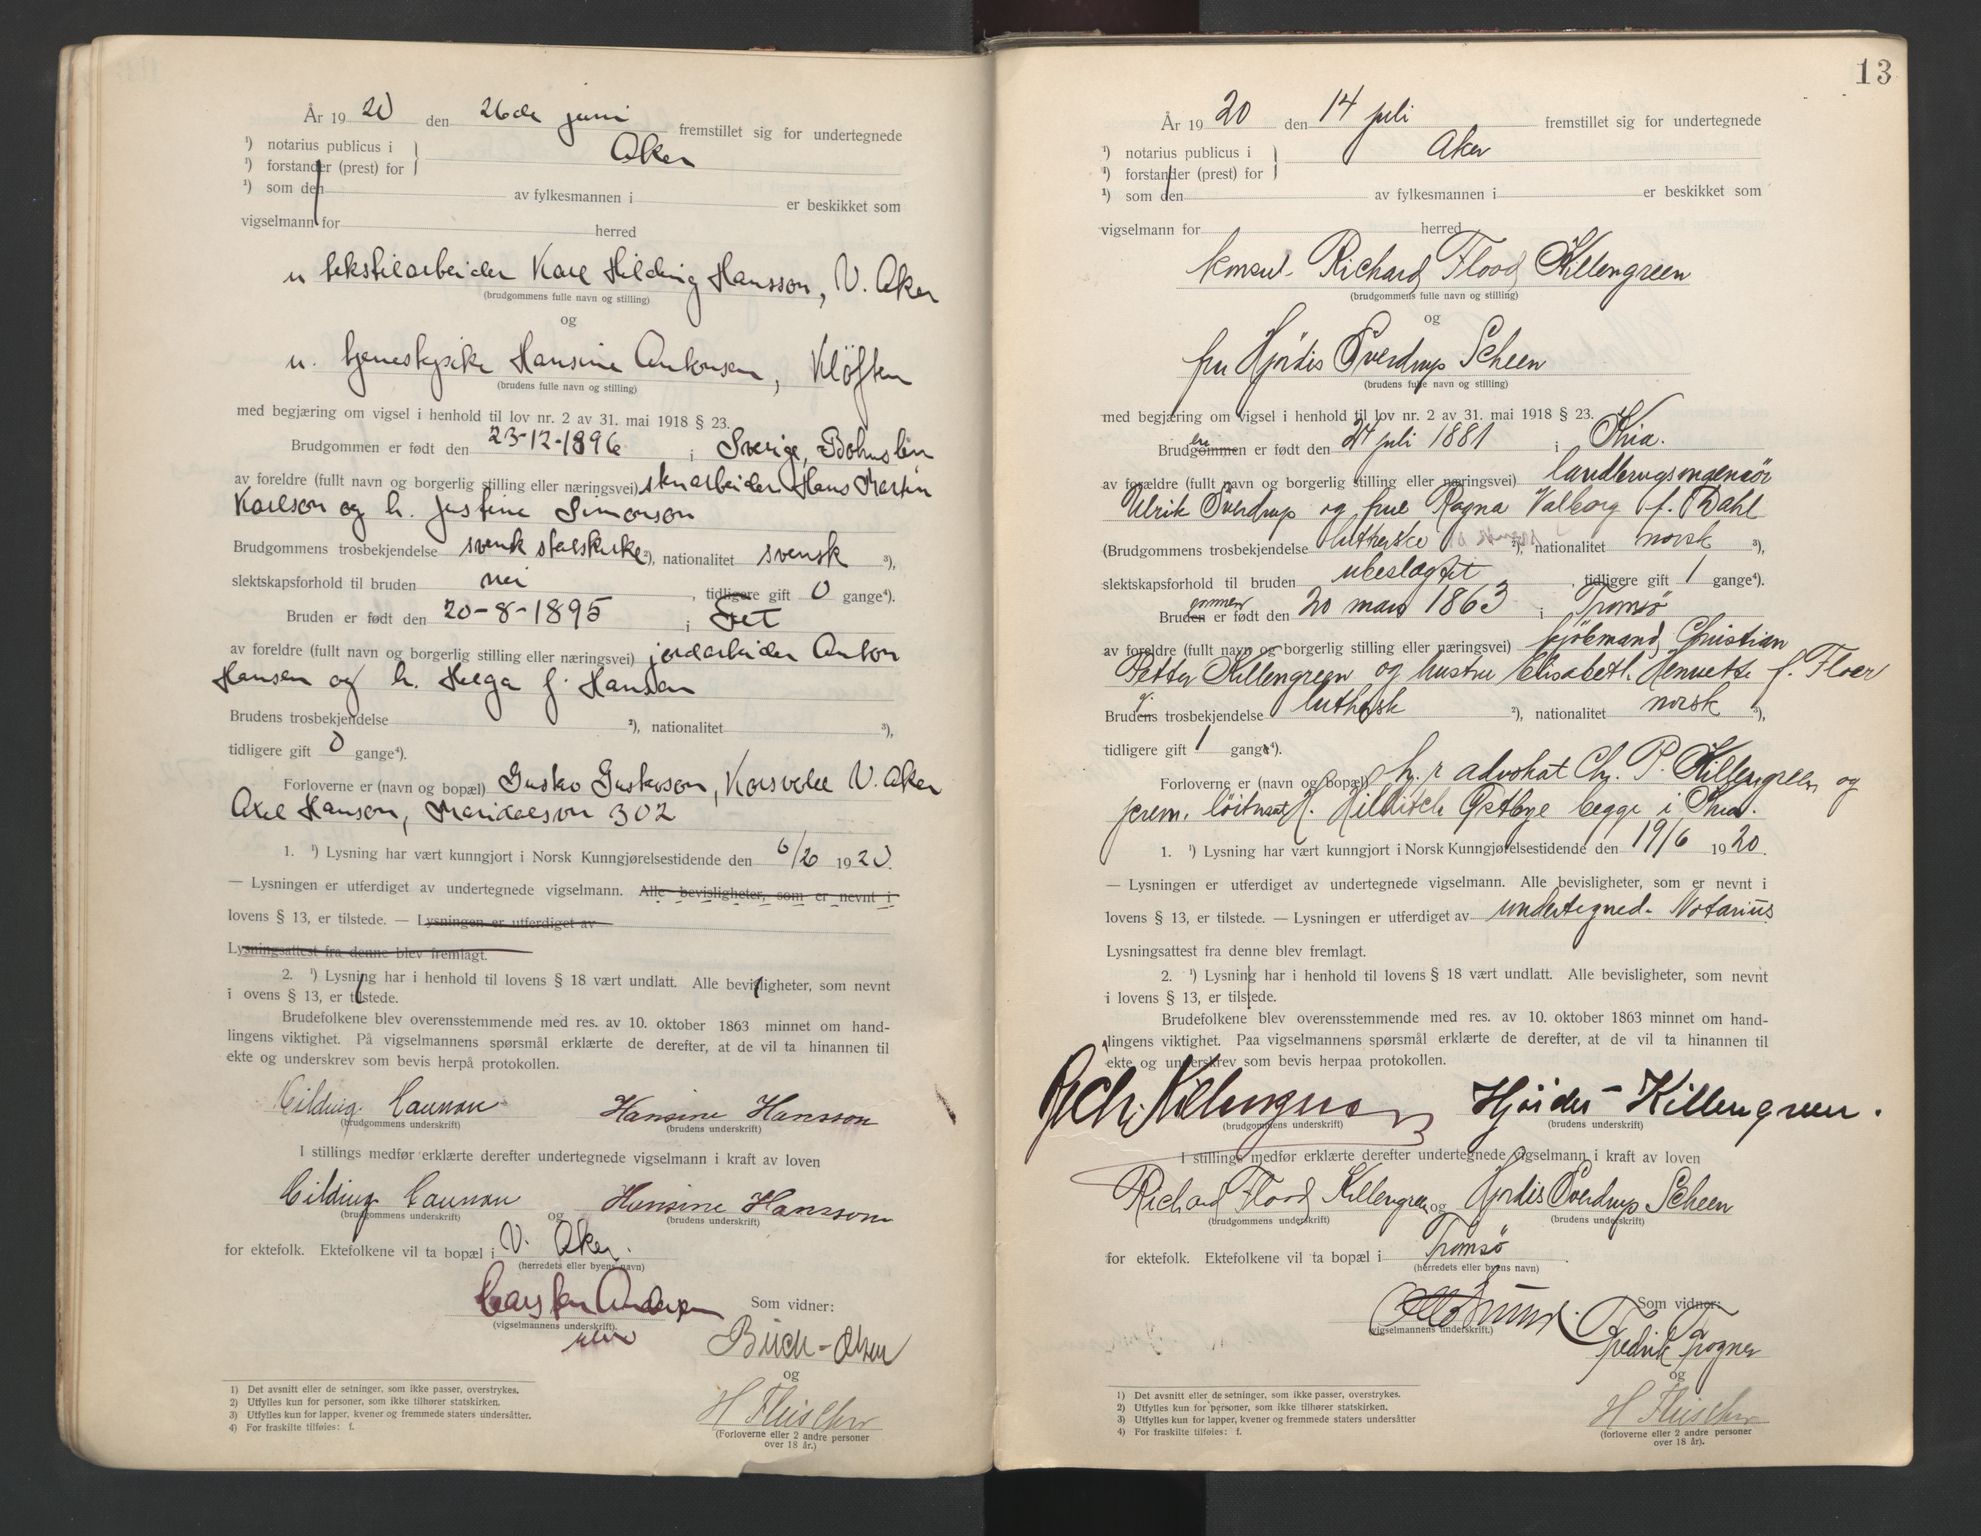 År 1920 den 26de juni fremstillet sig for undertegnede
¹) notarius publicus i } Aker
¹) forstander (prest) for
¹) som den av fylkesmannen i er beskikket som
vigselmann for herred
u tekstilarbeider Karl Hilding Hansson, V. Aker
(brudgommens fulle navn og stilling)
og
u. tjenestepike Hansine Antonsen, Kløften
(brudens fulle navn og stilling)
med begjæring om vigsel i henhold til lov nr. 2 av 31. mai 1918 § 23.
Brudgommen er født den 23-12-1896 i Sverige, Bohuslen
av foreldre (fullt navn og borgerlig stilling eller næringsvei) stenarbeider Hans Martin
Karlson og h. Justine Simonson
Brudgommens trosbekjendelse svensk statskirke ²), nationalitet svensk ³),
slektskapsforhold til bruden nei, tidligere gift 0 gange⁴).
Bruden er født den 20-8-1895 i Fet
av foreldre (fullt navn og borgerlig stilling eller næringsvei) jordarbeider Anton
Hansen og h. Helga f. Hansen
Brudens trosbekjendelse ²), nationalitet ³),
tidligere gift 0 gange⁴).
Forloverne er (navn og bopæl) Gustav Gustavson, Korsvoll V. Aker
Axel Hanson, Maridalsvn 302
1. ¹) Lysning har vært kunngjort i Norsk Kunngjørelsestidende den 6/6 1920.
— Lysningen er utferdiget av undertegnede vigselmann. Alle bevisligheter, som er nevnt i
lovens § 13, er tilstede. — Lysningen er utferdiget av
Lysningsattest fra denne blev fremlagt.
2. ¹) Lysning har i henhold til lovens § 18 vært undlatt. Alle bevisligheter, som nevnt
i ovens § 13, er tilstede.
Brudefolkene blev overensstemmende med res. av 10. oktober 1863 minnet om hand-
lingens viktighet. På vigselmannens spørsmål erklærte de derefter, at de vil ta hinannen til
ekte og underskrev som bevis herpå protokollen.
Hilding Hanson Hansine Hansson
(brudgommens underskrift) (brudens underskrift)
I stillings medfør erklærte derefter undertegnede vigselmann i kraft av loven
Hilding Hanson og Hansine Hansson
(brudgommens underskrift) (brudens underskrift)
for ektefolk. Ektefolkene vil ta bopæl i V. Aker.
(herredets eller byens navn)
Carsten Andersen Som vidner:
(vigselmannens underskrift).
Buch-Olsen
og
H Fleischer
(Forloverne eller 2 andre personer
over 18 år.)
1) Det avsnitt eller de setninger, som ikke passer, overstrykes.
2) Utfylles kun for personer, som ikke tilhører statskirken.
3) Utfylles kun for lapper, kvener og fremmede staters undersåtter.
4) For fraskilte tilføies: f.
13
År 1920 den 14 juli fremstillet sig for undertegnede
¹) notarius publicus i } Aker
¹) forstander (prest) for
¹) som den av fylkesmannen i er beskikket som
vigselmann for herred
konsul Richard Flood Killengreen
(brudgommens fulle navn og stilling)
og
fru Hjørdis Sverdrup Scheen
(brudens fulle navn og stilling)
med begjæring om vigsel i henhold til lov nr. 2 av 31. mai 1918 § 23.
en
Brudgommen er født den 24 juli 1881 i Kria.
av forældre (fullt navn og borgerlig stilling eller næringsvei) landbrugsingeniør
Ulrik Sverdrup og frue Ragna Valborg f. Dahl
(Brudgommens trosbekjendelse lutherske ²), nationalitet norsk ³),
slektskapsforhold til bruden ubeslægtet, tidligere gift 1 gange⁴).
gommen
Bruden er født den 20 mars 1863 i Tromsø
av foreldre (fullt navn og borgerlig stilling eller næringsvei) kjøbmand Christian
Petter Killengreen og hustru Elisabeth Henriette f. Floer
Brudens trosbekjendelse luthersk ²), nationalitet norsk ³),
tidligere gift 1 gange⁴).
Forloverne er (navn og bopæl) h. r. advokat Chr. P. Killengreen og
prem. løitnant H. Hilditch Østbye begge i Kria.
1. ¹) Lysning har vært kunngjort i Norsk Kunngjørelsestidende den 19/6 1920.
— Lysningen er utferdiget av undertegnede vigselmann. Alle bevisligheter, som er nevnt i
lovens § 13, er tilstede. — Lysningen er utferdiget av undertegnede Notarius
Lysningsattest fra denne blev fremlagt.
2. ¹) Lysning har i henhold til lovens § 18 vært undlatt. Alle bevisligheter, som nevnt
i lovens § 13, er tilstede.
Brudefolkene blev overensstemmende med res. av 10. oktober 1863 minnet om hand-
lingens viktighet. Paa vigselmannens spørsmål erklærte de derefter, at de vil ta hinannen til
ekte og underskrev som bevis herpaa protokollen.
Rich. Killengreen Hjørdis Killengreen.
(brudgommens underskrift) (brudens underskrift)
I stillings medfør erklærte derefter undertegnede vigselmann i kraft av loven
Richard Flood Killengreen og Hjørdis Sverdrup Scheen
(brudgommens underskrift) (brudens underskrift)
for ektefolk. Ektefolkene vil ta bopæl i Tromsø.
(herredets eller byens navn)
Som vidner:
(vigselmannens underskrift.)
Fredrik Trogner
og
H Fleischer
(forloverne eller 2 andre personer
over 18 år).
1) Det avsnitt eller de setninger, som ikke passer, overstrykes.
2) Utfylles kun for personer, som ikke tilhører statskirken.
3) Utfylles kun for lapper, kvener og fremmede staters undersåtter
4) For fraskilte tilføies: f.